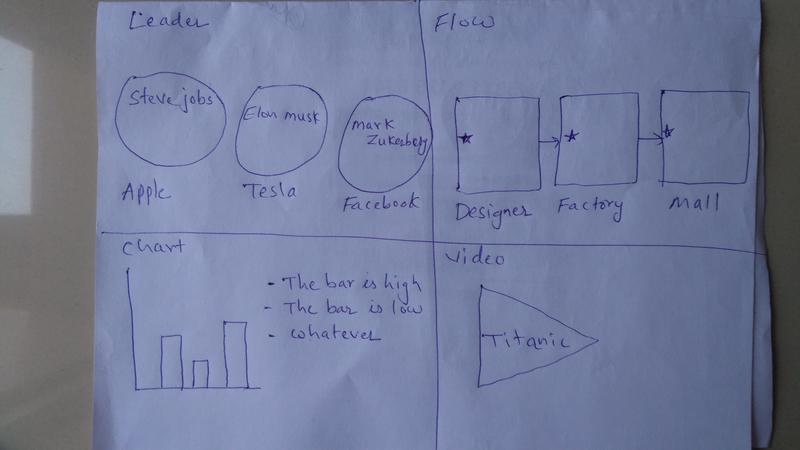 Leader
Steve jobs
Elon musk
mark
Zukerberg
Apple
Tesla
Facebook
Flow
Designer
Factory
Mall
Chart
- The bar is high
- The bar is low
- whatever
Video
Titanic